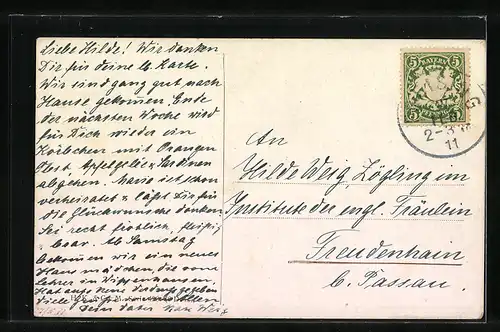 Liebe Hilde! Wir danken
Dir für deine lb. Karte.
Wir sind ganz gut nach
Hause gekommen. Ende
der nächsten Woche wird
für Dich wieder ein
Körbchen mit Orangen
Obst, Apfelgelée
abgehen. Marie ist schon
verheiratet u. läßt Dir für
die Glückwünsche danken
Sei recht fröhlich, fleißig
brav. Ab Samstag
bekommen wir ein neues
Hausmädchen, die vom
Lehrer in
Hat auch keine
Viele
Dein Vater
BAYERN
5 5
5 5
2-3
11
An
Hilde Weig Zögling im
Institute der engl. Fräulein
Freudenhain
b. Passau.